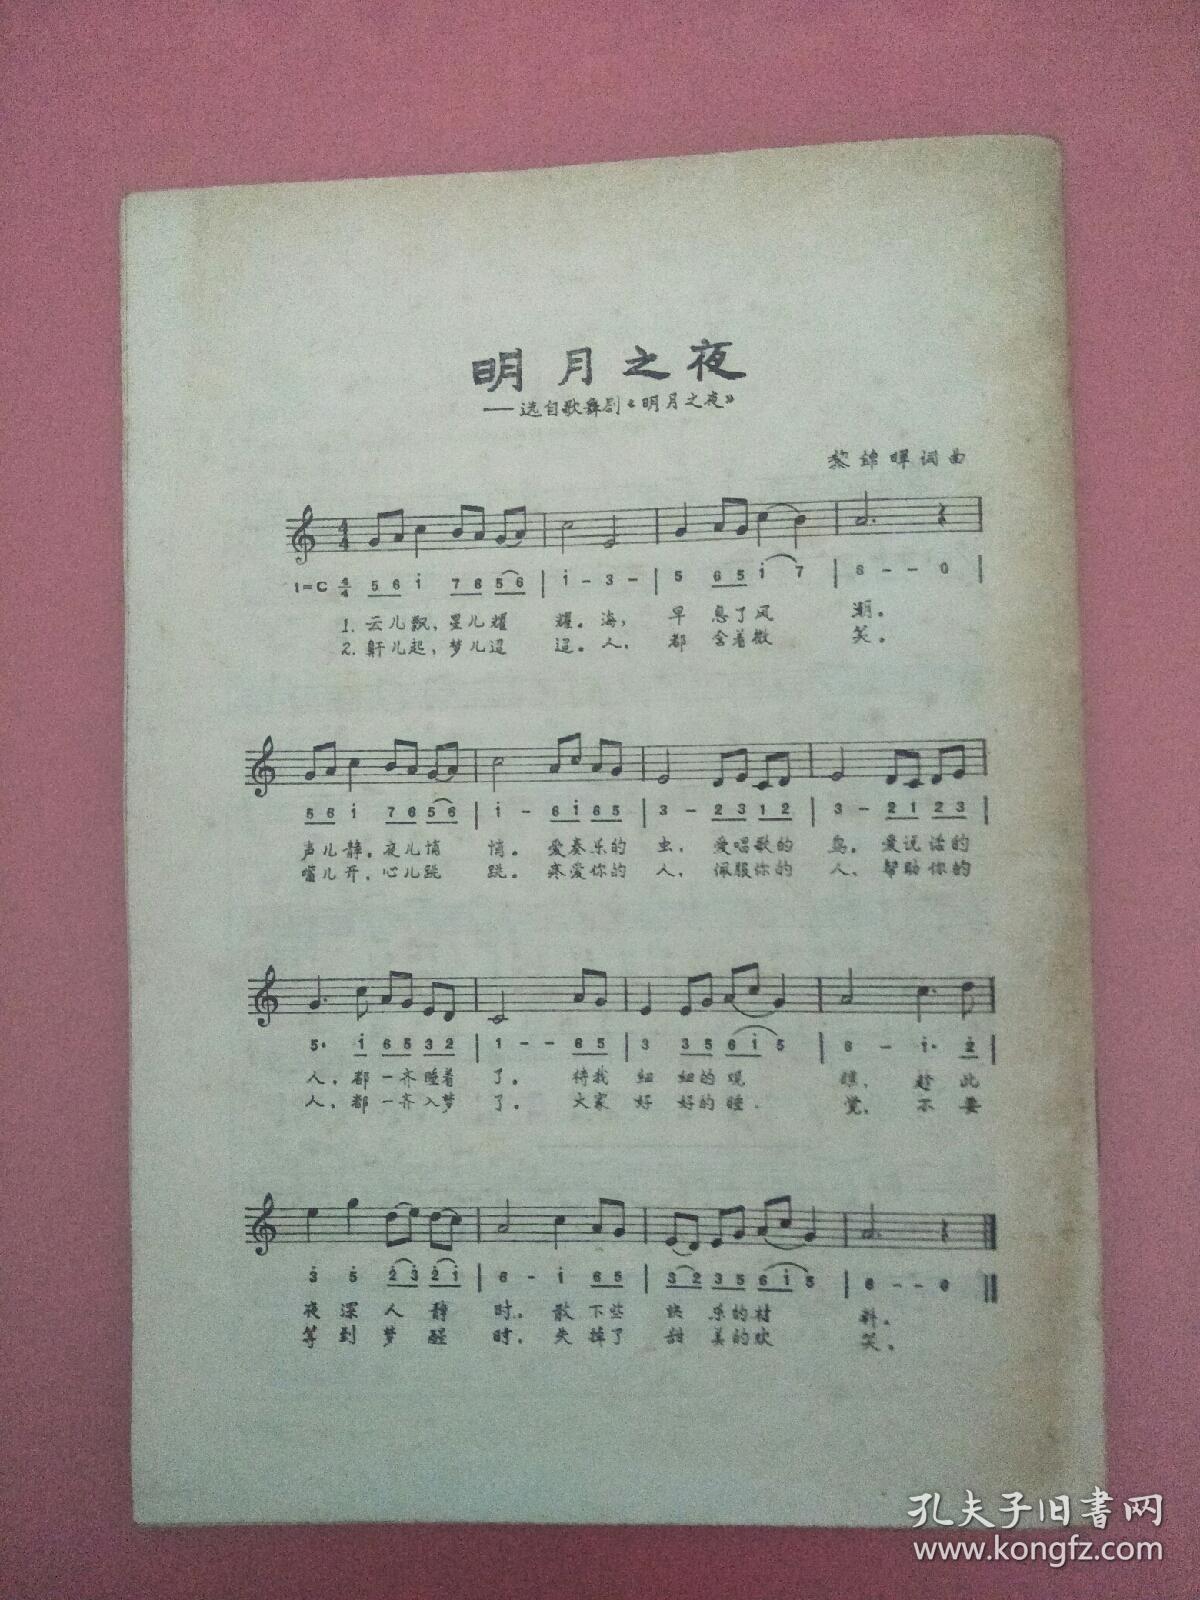 明月之夜
——选自歌舞剧《明月之夜》
黎锦晖词曲
1=C 4/4 5 6 i 7 6 5 6 | i - 3 - | 5 6 5 i 7 | 6 - - 0 |
1. 云儿飘，星儿耀 耀。海， 早 息了风 潮。
2. 鼾儿起，梦儿迢 迢。人， 都 含着微 笑。
5 6 i 7 6 5 6 | i - 6 i 6 5 | 3 - 2 3 1 2 | 3 - 2 1 2 3 |
声儿静，夜儿悄 悄。爱奏乐的 虫，爱唱歌的 鸟。爱说话的
嘴儿开，心儿跳 跳。疼爱你的 人，佩服你的 人，帮助你的
5· i 6 5 3 2 | 1 - - 6 5 | 3 3 5 6 i 5 | 6 - i· 2 |
人，都一齐睡着 了。 待我 细 细的观 瞧，趁 此
人，都一齐入梦 了。 大家 好 好的睡 觉，不 要
3 5 2 3 2 i | 6 - i 6 5 | 3 2 3 5 6 i 5 | 6 - - 0 ‖
夜 深 人 静 时，散 下些 快 乐的材 料。
等 到 梦 醒 时，失 掉了 甜 美的欢 笑。
孔夫子旧书网
www.kongfz.com